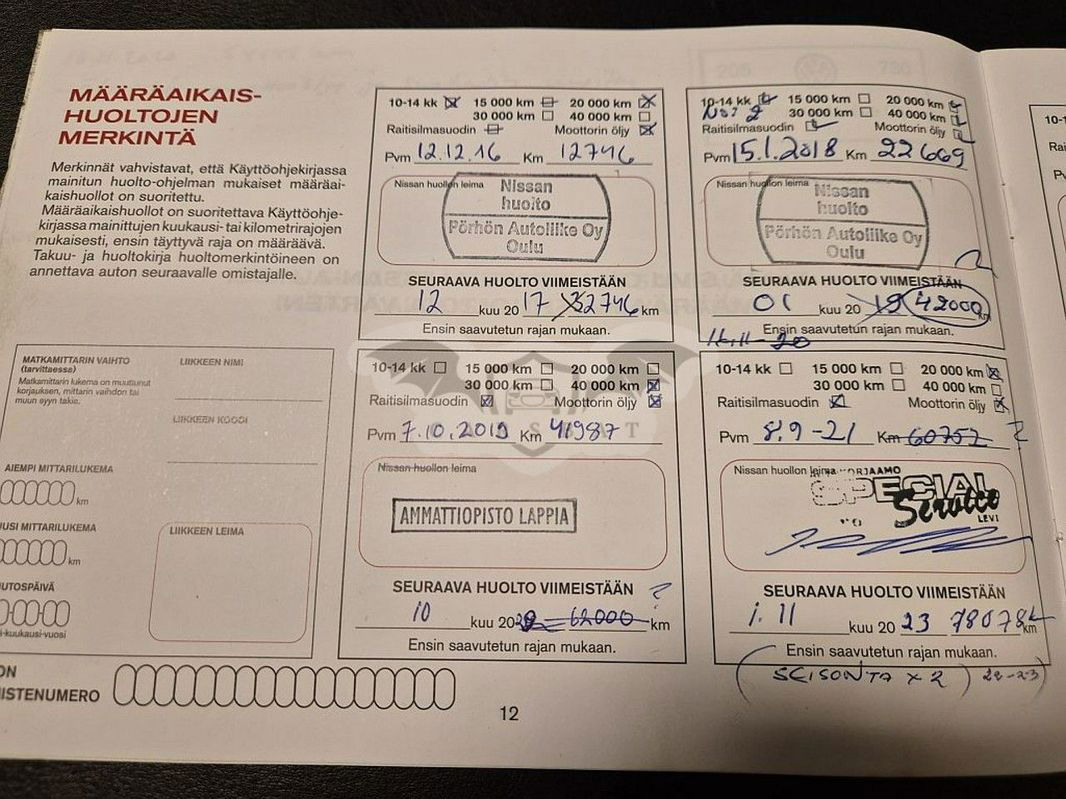 MÄÄRÄAIKAIS-
HUOLTOJEN
MERKINTÄ
Merkinnät vahvistavat, että Käyttöohjekirjassa
mainitun huolto-ohjelman mukaiset määräai-
kaishuollot on suoritettu.
Määräaikaishuollot on suoritettava Käyttöohje-
kirjassa mainittujen kuukausi- tai kilometrirajojen
mukaisesti, ensin täyttyvä raja on määräävä.
Takuu- ja huoltokirja huoltomerkintöineen on
annettava auton seuraavalle omistajalle.
10-14 kk 15 000 km 20 000 km
30 000 km 40 000 km
Raitisilmasuodin Moottorin öljy
Pvm 12.12.16 Km 12746
Nissan huollon leima
Nissan
huolto
Pörhön Autoliike Oy
Oulu
SEURAAVA HUOLTO VIIMEISTÄÄN
12 kuu 20 17 32746 km
Ensin saavutetun rajan mukaan.
10-14 kk 15 000 km 20 000 km
30 000 km 40 000 km
Raitisilmasuodin Moottorin öljy
Pvm 15.1.2018 Km 22669
Nissan huollon leima
Nissan
huolto
Pörhön Autoliike Oy
Oulu
SEURAAVA HUOLTO VIIMEISTÄÄN
01 kuu 20 19 42000 km
Ensin saavutetun rajan mukaan.
MATKAMITTARIN VAIHTO
(tarvittaessa)
Matkamittarin lukema on muuttunut
korjauksen, mittarin vaihdon tai
muun syyn takia.
LIIKKEEN NIMI
LIIKKEEN KOODI
AIEMPI MITTARILUKEMA
km
UUSI MITTARILUKEMA
km
LIIKKEEN LEIMA
10-14 kk 15 000 km 20 000 km
30 000 km 40 000 km
Raitisilmasuodin Moottorin öljy
Pvm 7.10.2019 Km 41987
Nissan huollon leima
AMMATTIOPISTO LAPPIA
SEURAAVA HUOLTO VIIMEISTÄÄN
10 kuu 20 62000 km
Ensin saavutetun rajan mukaan.
10-14 kk 15 000 km 20 000 km
30 000 km 40 000 km
Raitisilmasuodin Moottorin öljy
Pvm 8.9-21 Km 60757
Nissan huollon leima
SPECIAL
Service
LEVI
SEURAAVA HUOLTO VIIMEISTÄÄN
1.11 kuu 20 23 78078 km
Ensin saavutetun rajan mukaan.
(SEISONTA x 2) 22-23
12